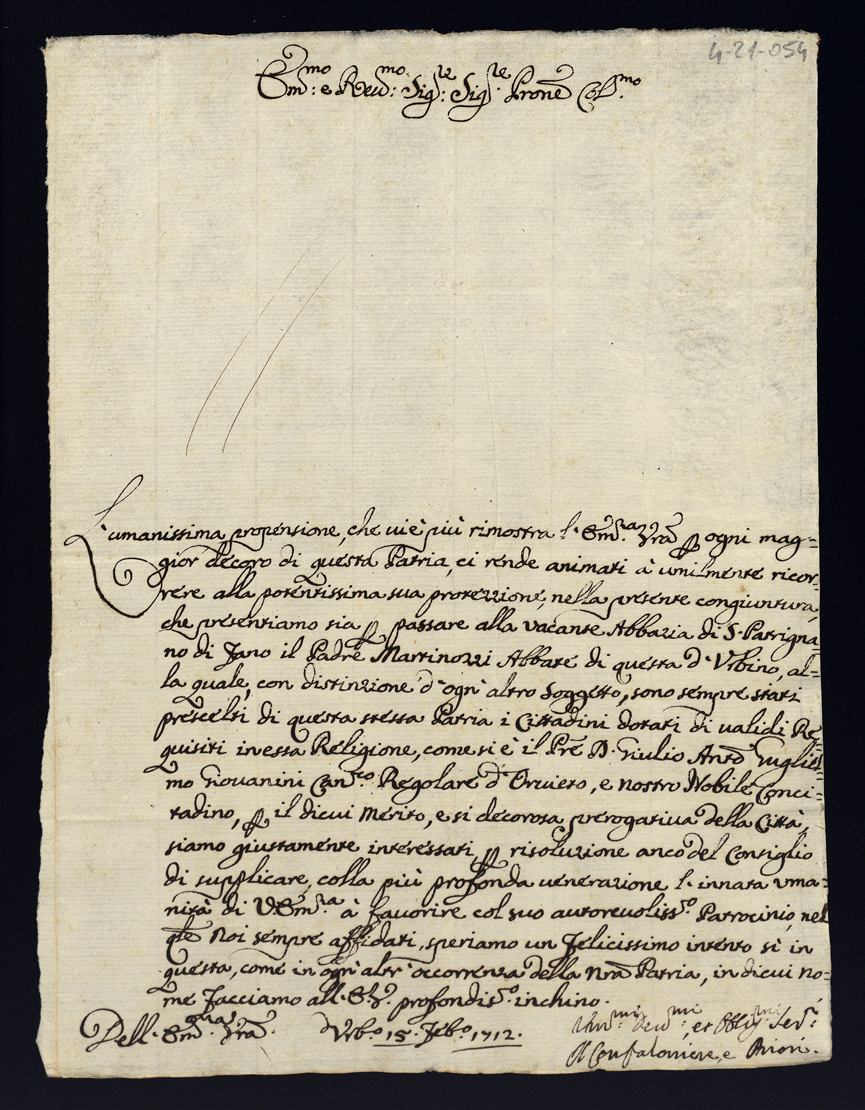 4-21-054
Em:mo e Reud:mo Sig:re Sig:re Prone Col:mo
L'umanissima propensione, che uie più rimostra l'Em:za Vra p ogni mag=
gior decoro di questa Patria, ci rende animati à umilmente ricor=
rere alla potentissima sua protezzione, nella presente congiuntura,
che presentiamo sia p passare alla vacante Abbazia di S. Patrigna=
no di Jano il Padre Martinozzi Abbate di questa d'Urbino, al=
la quale, con distinzione d'ogn'altro soggetto, sono sempre stati
prescelti di questa stessa Patria i Cittadini dotati di validi Re=
quisiti in essa Religione, come si è il Pre D. Giulio Anto Gugliel=
mo Giovanini Can:co Regolare d'Orvieto, e nostro Nobile Conci=
tadino, p il dicui Merito, e si decorosa prerogativa della Città,
siamo giustamente interessati p risoluzione anco del Consiglio
di supplicare, colla più profonda uenerazione l'innata vma=
nità di V Em:za à fauorire col suo autoreuoliss:o Patrocinio, nel
qle Noi sempre affidati, speriamo un felicissimo intento sì in
questa, come in ogn'altr'occorrenza della Nra Patria, in dicui no=
me facciamo all'E.V. profondis:o inchino.
Dell'Em:za Vra. Urb:o 15. Feb:o 1712.
Um:mi Deu:mi, et Obblig:mi Ser:i
Il Confaloniere, e Priori.